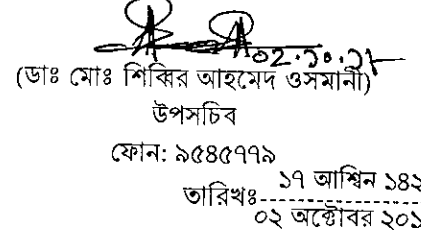 ০২.১০.১৭
(ডাঃ মোঃ শিব্বির আহমেদ ওসমানী)
উপসচিব
ফোন: ৯৫৪৫৭৭৯
১৭ আশ্বিন ১৪২
তারিখঃ
০২ অক্টোবর ২০১